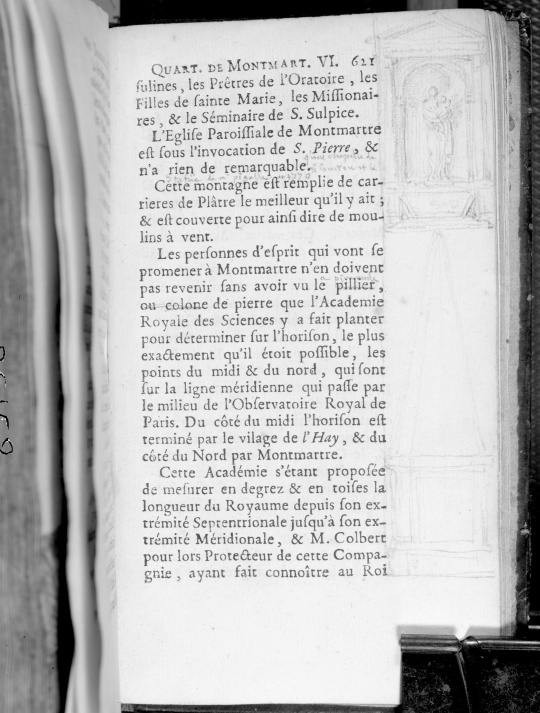 QUART. DE MONTMART. VI. 621
ſulines, les Prêtres de l'Oratoire, les
Filles de ſainte Marie, les Miſſionai-
res, & le Séminaire de S. Sulpice.
L'Egliſe Paroiſſiale de Montmartre
eſt ſous l'invocation de S. Pierre, &
n'a rien de remarquable.
Cette montagne eſt remplie de car-
rieres de Plâtre le meilleur qu'il y ait;
& eſt couverte pour ainſi dire de mou-
lins à vent.
Les perſonnes d'eſprit qui vont ſe
promener à Montmartre n'en doivent
pas revenir ſans avoir vu le pillier,
ou colone de pierre que l'Academie
Royale des Sciences y a fait planter
pour déterminer ſur l'horiſon, le plus
exactement qu'il étoit poſſible, les
points du midi & du nord, qui ſont
ſur la ligne méridienne qui paſſe par
le milieu de l'Obſervatoire Royal de
Paris. Du côté du midi l'horiſon eſt
terminé par le vilage de l'Hay, & du
côté du Nord par Montmartre.
Cette Académie s'étant propoſée
de meſurer en degrez & en toiſes la
longueur du Royaume depuis ſon ex-
trémité Septentrionale juſqu'à ſon ex-
trémité Méridionale, & M. Colbert
pour lors Protecteur de cette Compa-
gnie, ayant fait connoître au Roi